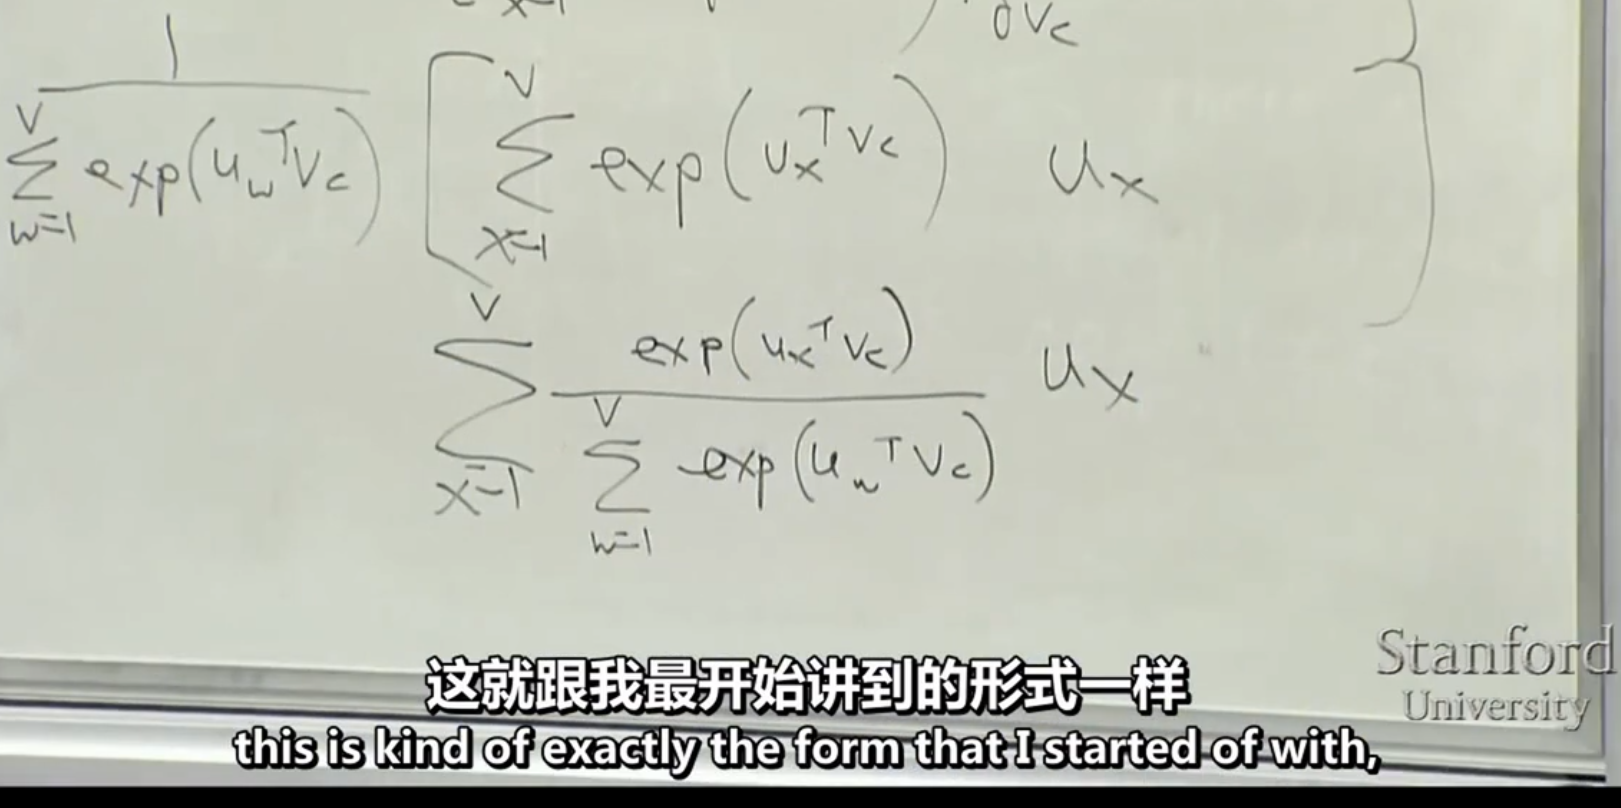 ∂Vc
1 / Σ_{w=1}^{V} exp(u_w^T V_c) [ Σ_{x=1}^{V} exp(u_x^T V_c) u_x
Σ_{x=1}^{V} exp(u_x^T V_c) / Σ_{w=1}^{V} exp(u_w^T V_c) u_x
Stanford
University
这就跟我最开始讲到的形式一样
this is kind of exactly the form that I started of with,